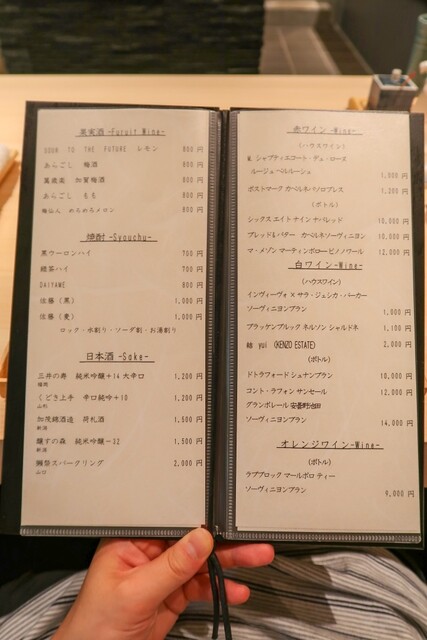 果実酒 -Furuit Wine-
SOUR TO THE FUTURE レモン 800 円
あらごし 梅酒 800 円
萬歳楽 加賀梅酒 800 円
あらごし もも 800 円
梅仙人 めろめろメロン 800 円
焼酎 -Syouchu-
黒ウーロンハイ 700 円
緑茶ハイ 700 円
DAIYAME 800 円
佐藤 (黒) 1,000 円
佐藤 (麦) 1,000 円
ロック・水割り・ソーダ割・お湯割り
日本酒 -Sake-
三井の寿 純米吟醸+14大辛口 1,200 円
福岡
くどき上手 辛口純吟+10 1,200 円
山形
加茂錦酒造 荷札酒 1,500 円
新潟
醸すの森 純米吟醸-32 1,500 円
新潟
獺祭スパークリング 2,000 円
山口
赤ワイン -Wine-
(ハウスワイン)
M. シャプティエコート・デュ・ローヌ
ルージュ ベルルーシュ 1,000 円
ポストマーク カベルネパソロブレス 1,200 円
(ボトル)
シックス エイト ナイン ナパレッド 10,000 円
ブレッド&バター カベルネソーヴィニヨン 10,000 円
マ・メゾン マーティンボロー ピノワール 12,000 円
白ワイン -Wine-
(ハウスワイン)
インヴィーヴォ × サラ・ジェシカ・パーカー
ソーヴィニヨンブラン 1,000 円
ブラッケンブルック ネルソン シャルドネ 1,100 円
結 yui (KENZO ESTATE) 2,000 円
(ボトル)
ドトラフォード シュナンブラン 10,000 円
コント・ラフォン サンセール 12,000 円
グランポレール 安曇野池田
ソーヴィニヨンブラン 14,000 円
オレンジワイン -Wine-
(ボトル)
ラブブロック マールボロ ティー
ソーヴィニヨンブラン 9,000 円